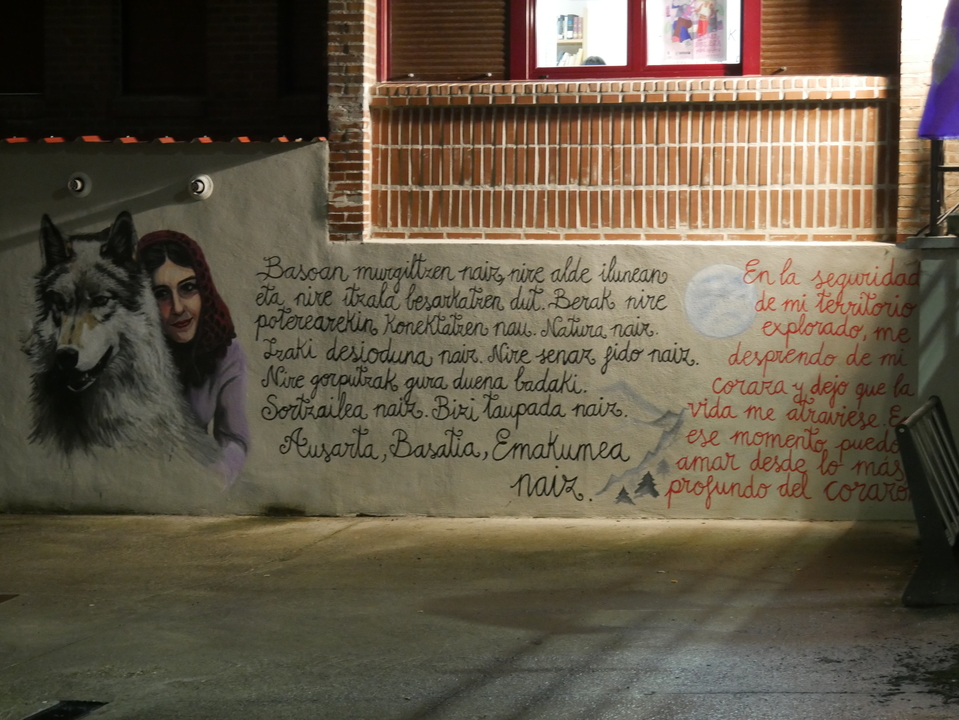 Basoan murgiltzen naiz, nire alde ilunean
eta nire itzala besarkatzen dut. Berak nire
poterearekin konektatzen nau. Natura naiz.
Izaki desioduna naiz. Nire senaz fido naiz.
Nire gorputzak gura duena badaki.
Sortzailea naiz. Bizi taupada naiz.
Ausarta, Basatia, Emakumea
naiz.
En la seguridad
de mi territorio
explorado, me
desprendo de mi
coraza y dejo que la
vida me atraviese. En
ese momento, puedo
amar desde lo más
profundo del corazón